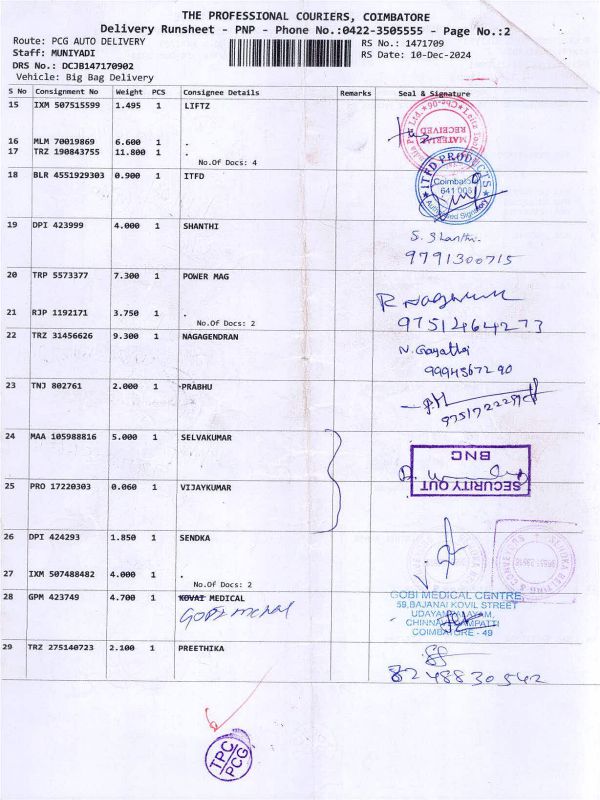 THE PROFESSIONAL COURIERS, COIMBATORE
Delivery Runsheet - PNP - Phone No.:0422-3505555 - Page No.:2
Route: PCG AUTO DELIVERY
RS No.: 1471709
Staff: MUNIYADI
RS Date: 10-Dec-2024
DRS No.: DCJB147170902
Vehicle: Big Bag Delivery
S No Consignment No Weight PCS Consignee Details Remarks Seal & Signature
15 IXM 507515599 1.495 1 LIFTZ
MATERIALS RECEIVED
16 MLM 70019869 6.600 1 .
17 TRZ 190843755 11.800 1 .
No.Of Docs: 4
18 BLR 4551929303 0.900 1 ITFD
ITFD PRODUCTS
Coimbatore
641 006
Authorised Signatory
19 DPI 423999 4.000 1 SHANTHI
S. Shanthi.
9791300715
20 TRP 5573377 7.300 1 POWER MAG
21 RJP 1192171 3.750 1 .
No.Of Docs: 2
9751464273
22 TRZ 31456626 9.300 1 NAGAGENDRAN
N. Gayathri
9994567290
23 TNJ 802761 2.000 1 PRABHU
24 MAA 105988816 5.000 1 SELVAKUMAR
SECURITY OUT
BNC
25 PRO 17220303 0.060 1 VIJAYKUMAR
26 DPI 424293 1.850 1 SENDKA
27 IXM 507488482 4.000 1 .
No.Of Docs: 2
28 GPM 423749 4.700 1 KOVAI MEDICAL
GOBI medical
GOBI MEDICAL CENTRE,
59,BAJANAI KOVIL STREET
UDAYAMPALAYAM,
COIMBATORE - 49
29 TRZ 275140723 2.100 1 PREETHIKA
8248830542
TPC
PCG